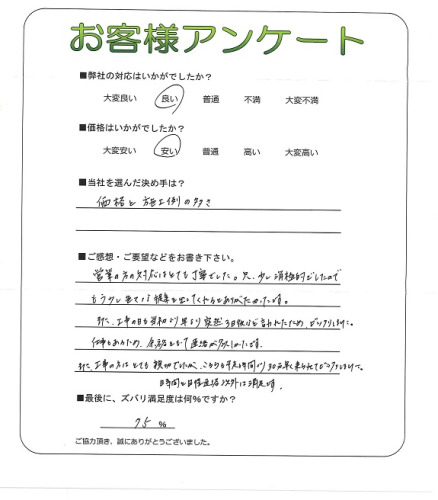 お客様アンケート
■弊社の対応はいかがでしたか？
大変良い 良い 普通 不満 大変不満
■価格はいかがでしたか？
大変安い 安い 普通 高い 大変高い
■当社を選んだ決め手は？
価格と施工例の多さ
■ご感想・ご要望などをお書き下さい。
営業の方の対応はとても丁寧でした。只、少し消極的でしたので
もう少し 提案を出してくれるとありがたかったです。
また、工事の日も 突然 言われたため、ビックリしました。
仕事もあるため、余裕をもって連絡が欲しかったです。
また、工事の方はとても親切でしたが、 予定時間より30分早く来られてビックリしました。
日時間と日程連絡以外は満足です。
■最後に、ズバリ満足度は何％ですか？
75 ％
ご協力頂き、誠にありがとうございました。